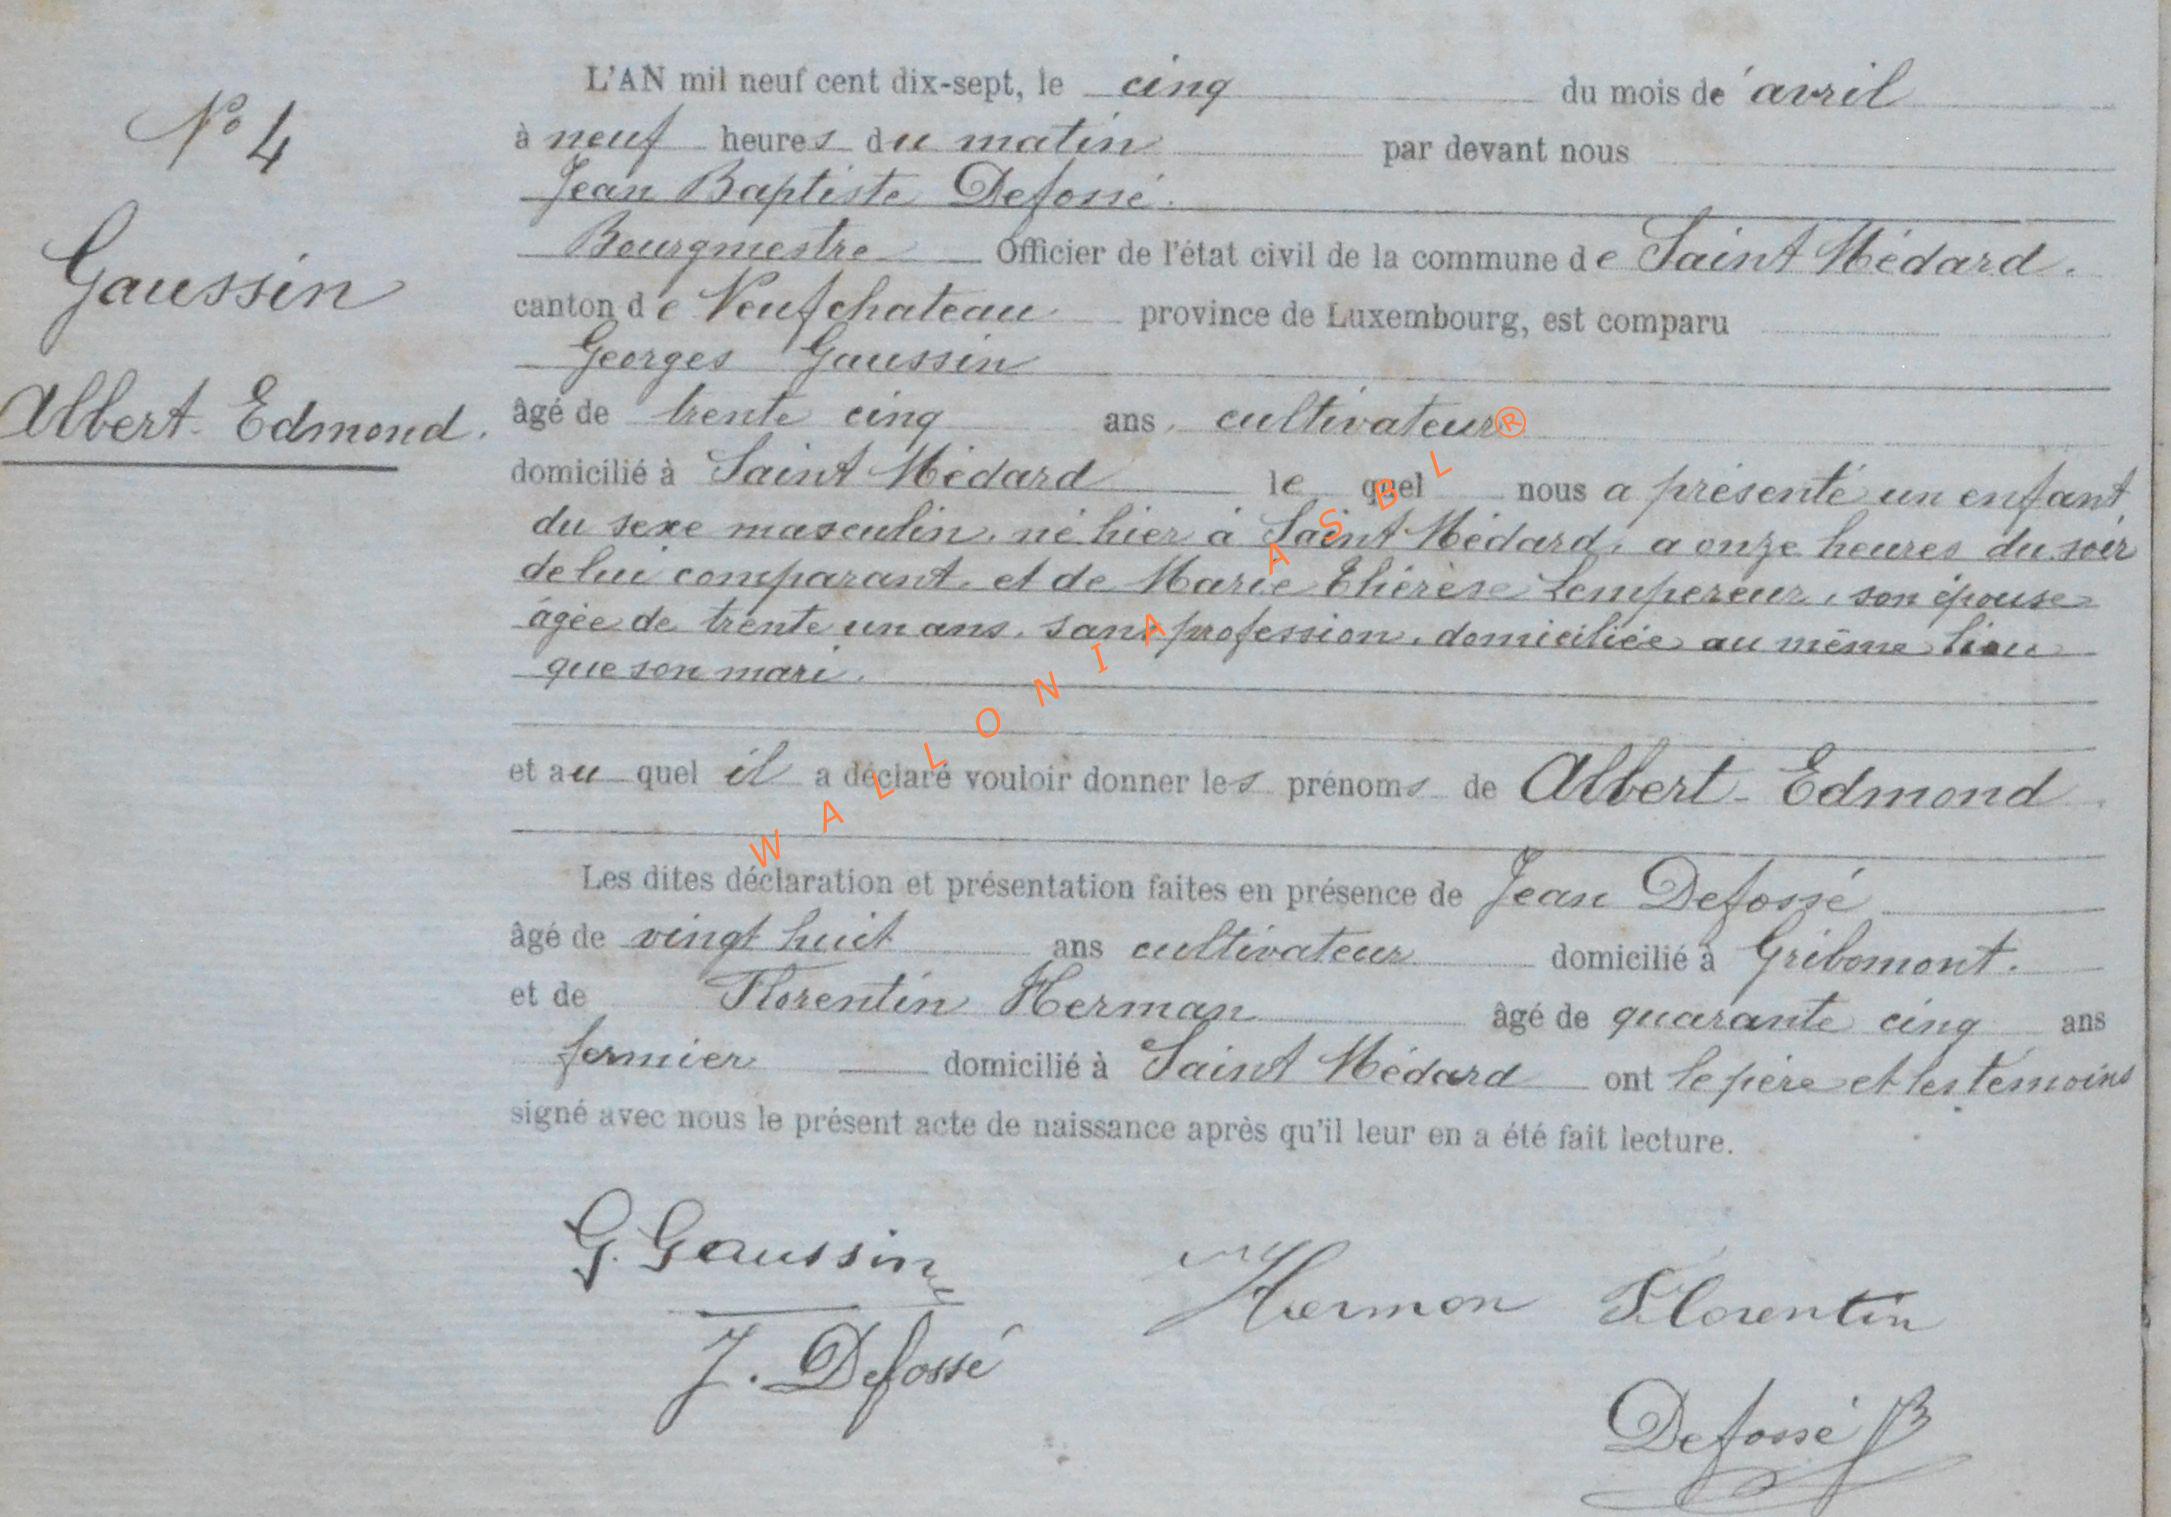 N° 4
Gaussin
Albert-Edmond.
L'AN mil neuf cent dix-sept, le cinq du mois de avril
à neuf heures du matin par devant nous
Jean Baptiste Defossé.
Bourgmestre Officier de l'état civil de la commune de Saint Médard.
canton de Neufchateau province de Luxembourg, est comparu
Georges Gaussin
âgé de trente cinq ans, cultivateur
domicilié à Saint Médard le quel nous a présenté un enfant
du sexe masculin, né hier à Saint Médard, a onze heures du soir
de lui comparant, et de Marie Thérèse Lempereur, son épouse
âgée de trente un ans, sans profession, domiciliée au même lieu
que son mari.
et au quel il a déclaré vouloir donner les prénoms de Albert-Edmond.
Les dites déclaration et présentation faites en présence de Jean Defossé
âgé de vingt huit ans cultivateur domicilié à Gribomont.
et de Florentin Herman âgé de quarante cinq ans
fermier domicilié à Saint Médard ont le père et les témoins
signé avec nous le présent acte de naissance après qu'il leur en a été fait lecture.
G. Gaussin
Hermon Florentin
J. Defossé
Defossé JB
WALLONIA ASBL®